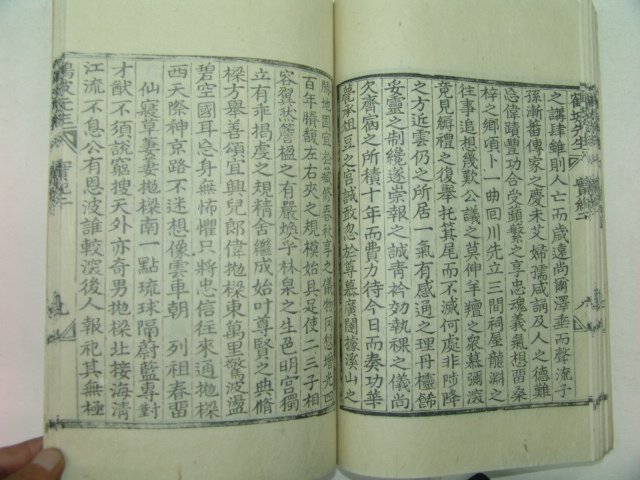 鶴坡先生實紀二
之講肆雖則人亡而歲遠尚爾澤垂而聲流子
孫漸蕃傳家之慶未艾婦孺咸誦及人之德難
忘偉蹟豐功合受蘋蘩之享忠魂義氣想留桑
梓之鄉頃卜一曲回川先立三間祠屋龍淵之
往事追想幾歎公議之莫伸羊疃之衆慕彌深
竟見縟禮之復舉托箕尾而不滅何處非陟降
之方近雲仍之所居一氣有感通之理丹楹餙
妥靈之制纔遂崇報之誠靑衿効執祼之儀尚
欠齋宿之所積十年而費力待今日而奏功華
承俎豆之官誠敢忽於尊慕廣闊據溪山之
勝地固宜於藏修春秋享之儀物 校增光四
百年賸馥左右夾之規模始具足使二三子相
容翼狀簷楹之有嚴煥乎林泉之生色明宮獨
立有乖揭虔之規精舍繼成始叶尊賢之典脩
樑方舉善頌宜興兒郞偉拋樑東萬里驚波盪
碧空國耳忘身無怖懼只將忠信往來通拋樑
西天際神京路不迷想像雲車朝 列祖春留
仙寢草萋萋拋樑南一點琉球隔蔚藍專對
才猷不須說窮搜天外亦奇男拋樑北接海淸
江流不息公有恩波誰較深後人報祀其無極
鶴坡先生實紀二